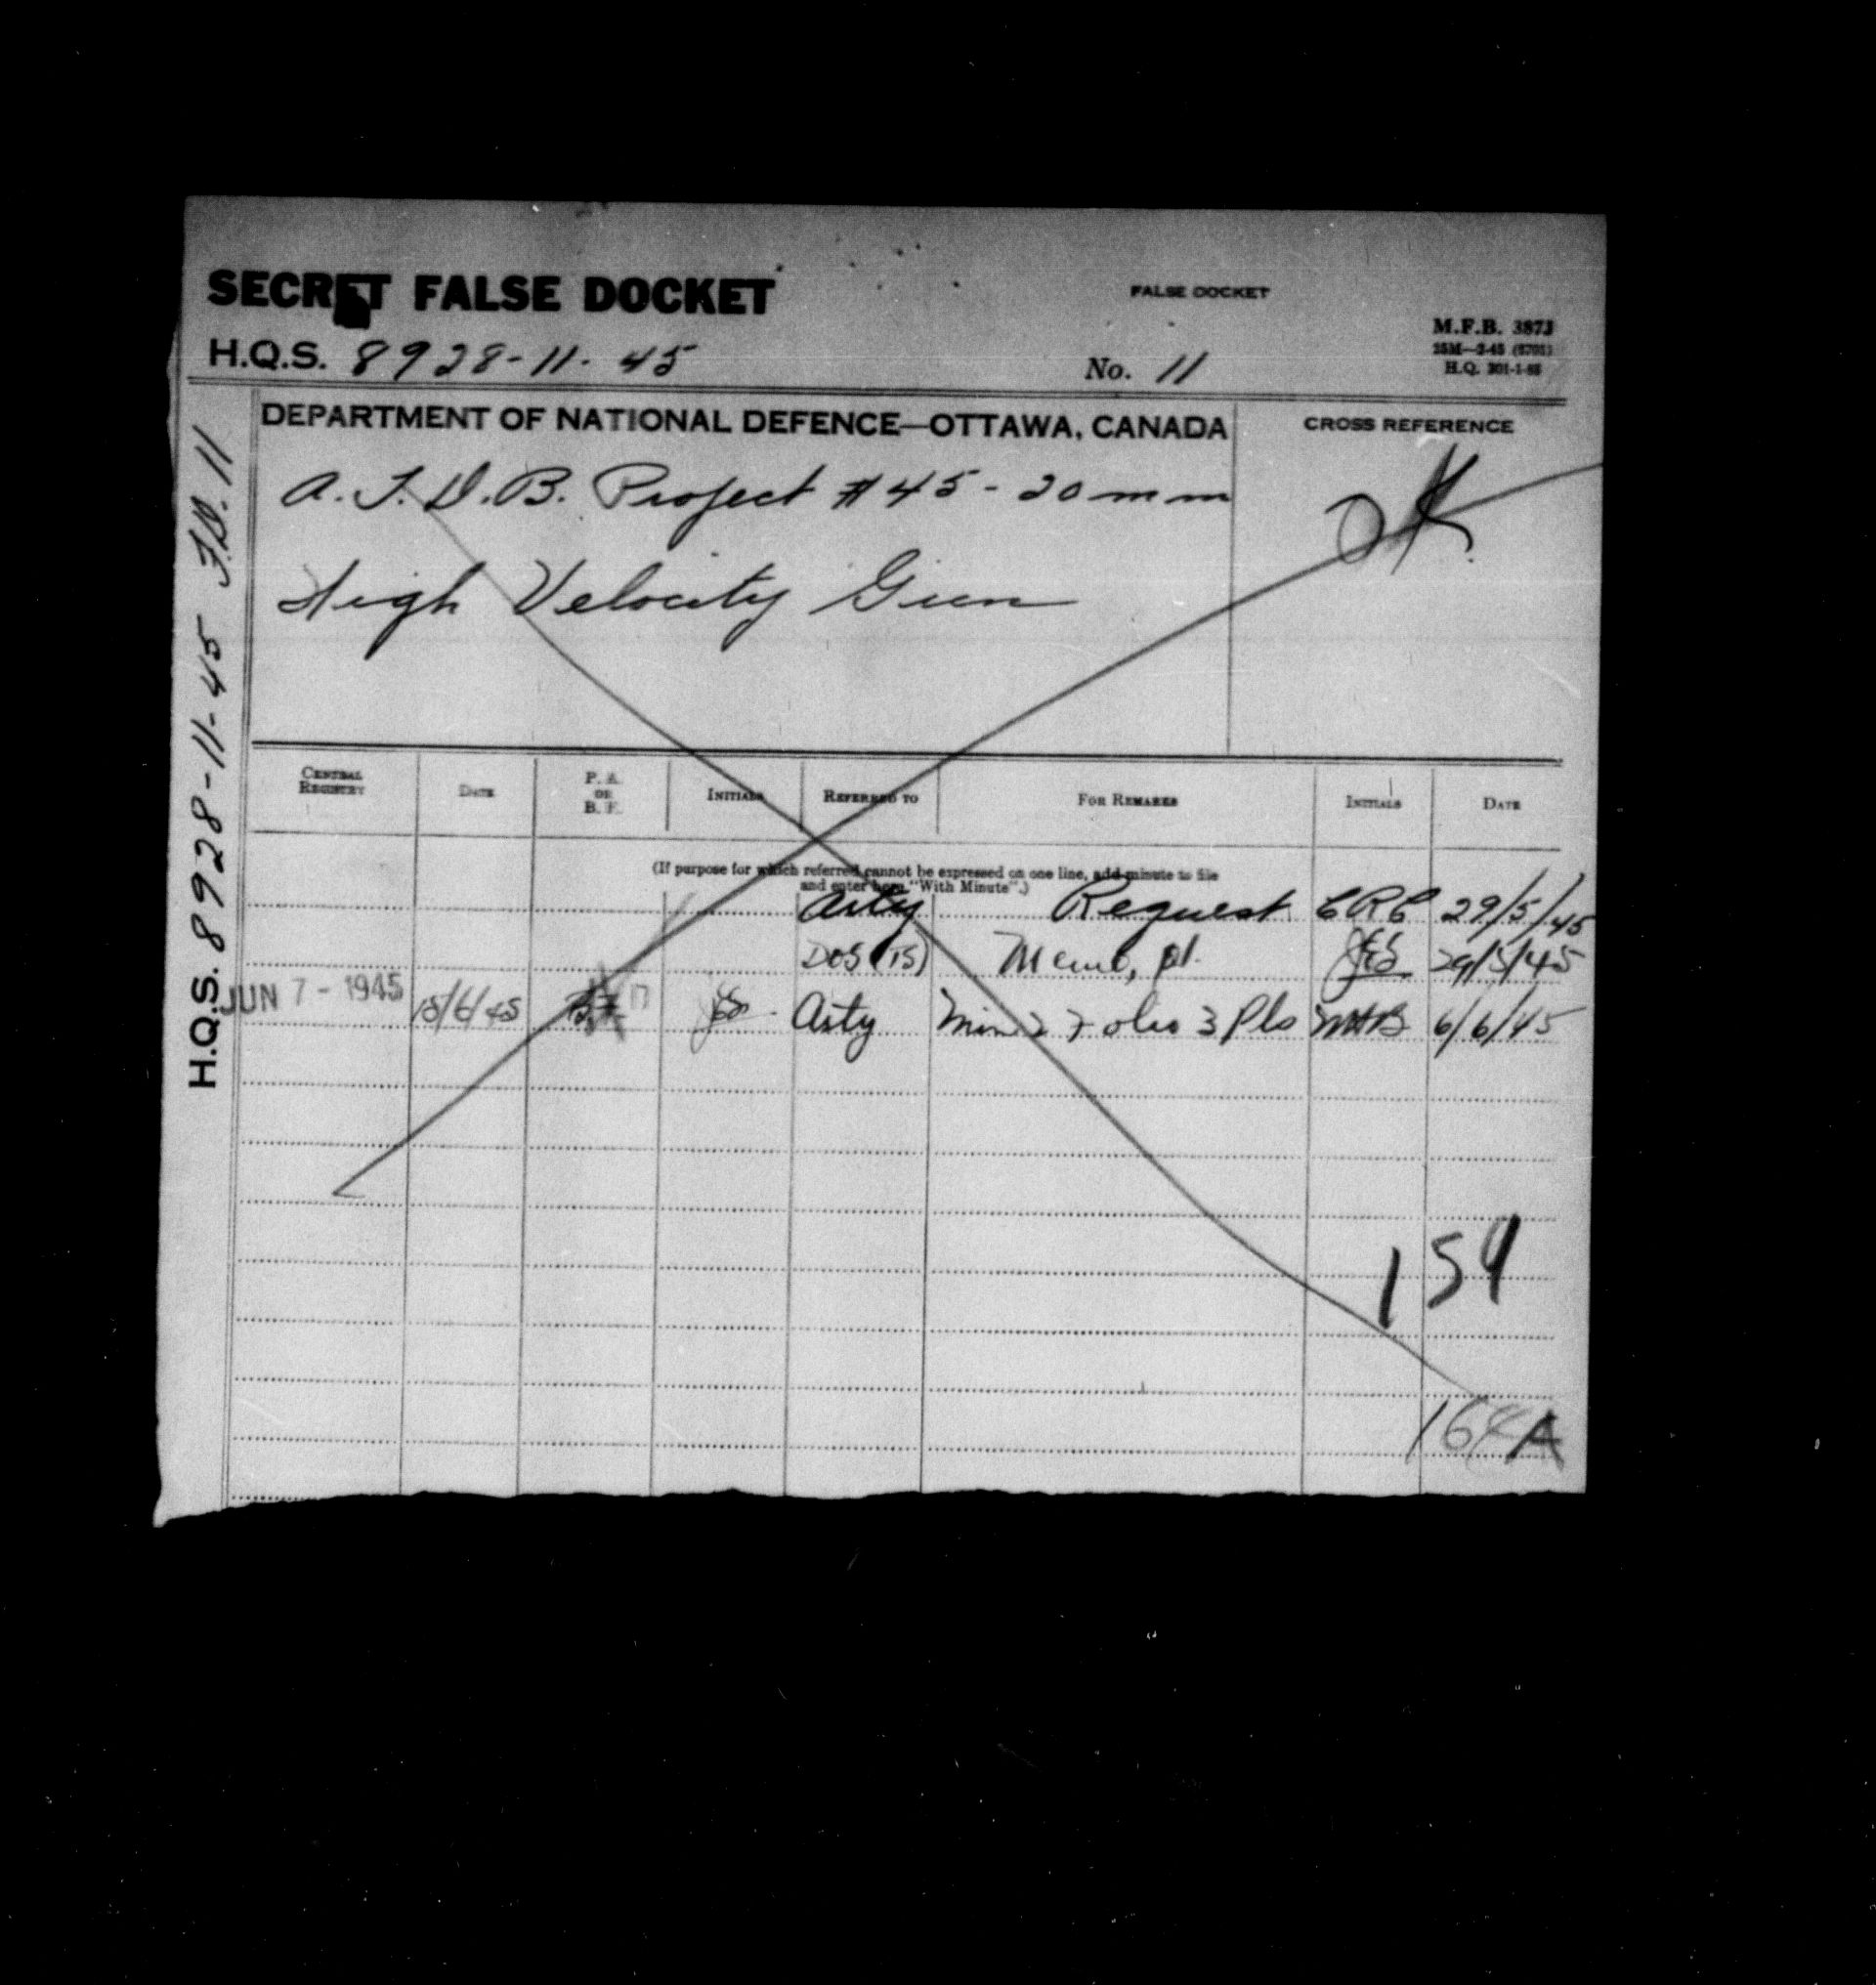 SECRET FALSE DOCKET
FALSE DOCKET
M.F.B. 387J
25M—2-45 (5701)
H.Q. 301-1-88
H.Q.S. 8928-11-45
No. 11
H.Q.S. 8928-11-45 F.D. 11
DEPARTMENT OF NATIONAL DEFENCE—OTTAWA, CANADA
CROSS REFERENCE
A.T.D.B. Project #45 - 20 mm
High Velocity Gun
CENTRAL REGISTRY
DATE
P. A. OR B. F.
INITIALS
REFERRED TO
FOR REMARKS
INITIALS
DATE
(If purpose for which referred cannot be expressed on one line, add minute to file
and enter here "With Minute".)
Arty Request CRC 29/5/45
DOS (TS) Memo, pl. 29/5/45
JUN 7 - 1945 15/6/45 Arty Min 2 Folio 3 Pls MAB 6/6/45
154
164A